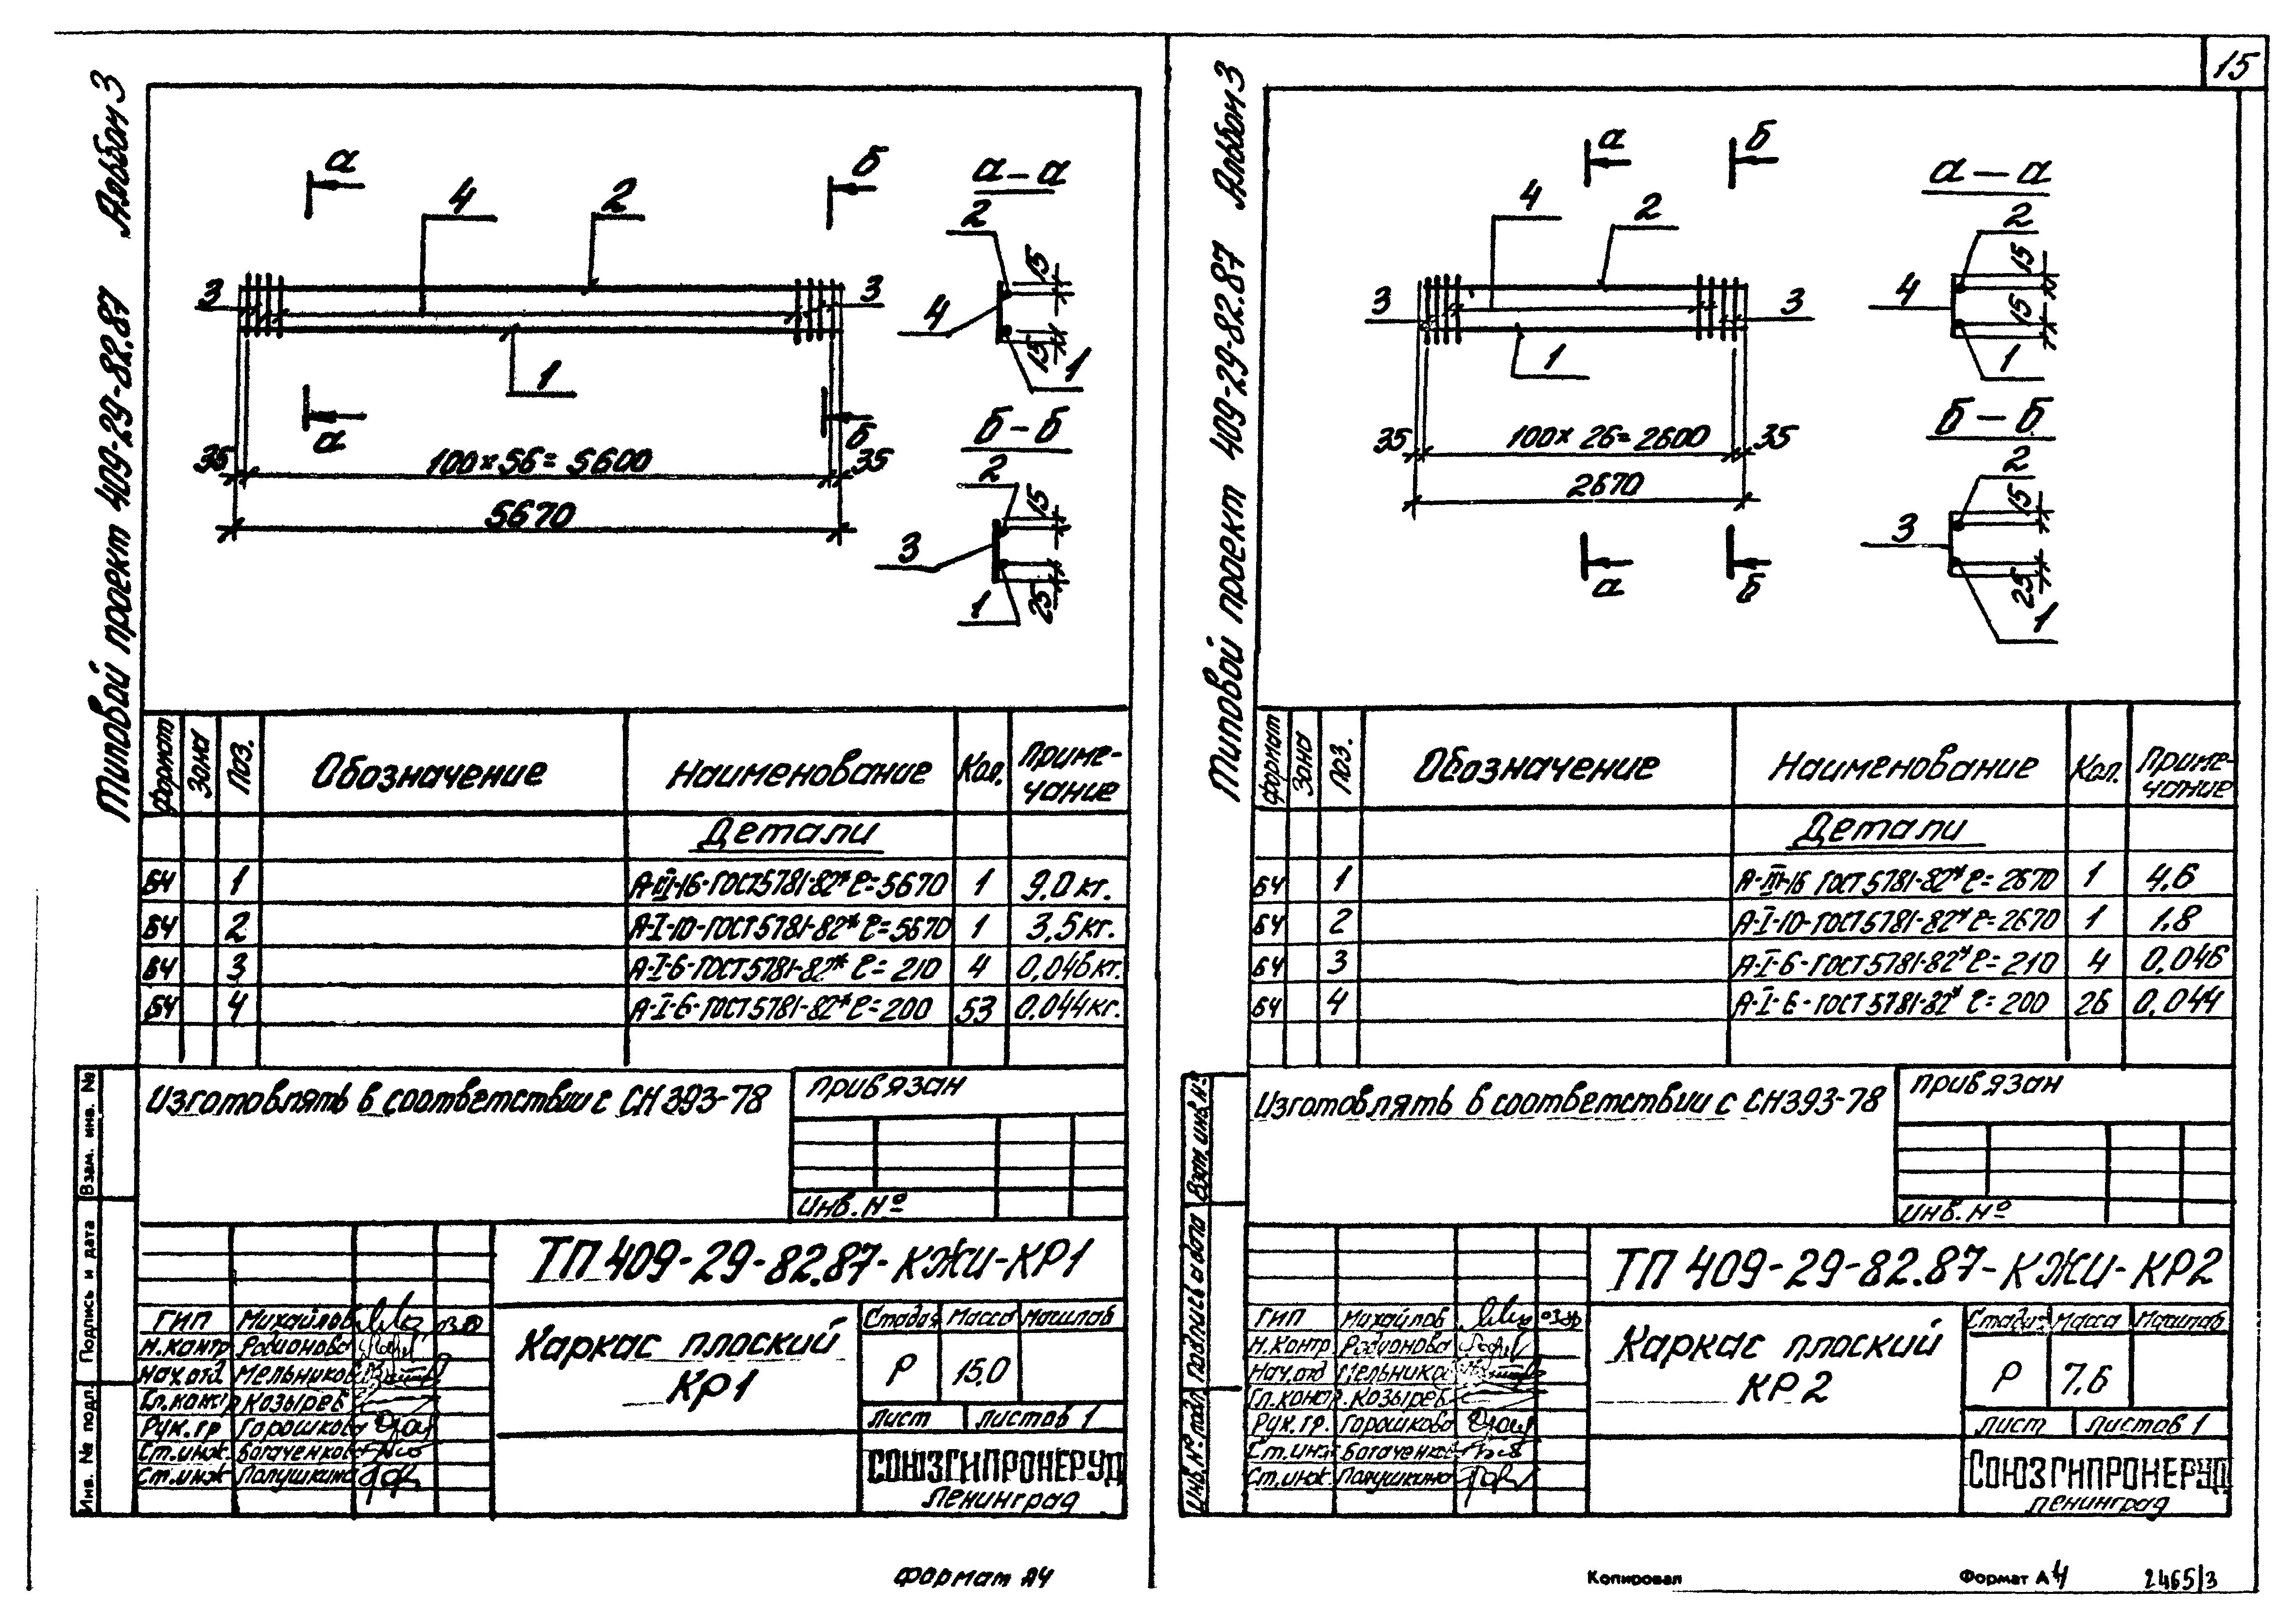 15
Типовой проект 409-29-82.87 Альбом 3
а
б
а-а
4
2
2
15
3
3
4
15
1
1
а
б
б-б
35
100×56=5600
35
2
15
5670
3
1
25
формат
Зона
Поз.
Обозначение
Наименование
Кол.
Приме-
чание
Детали
БЧ 1 А-III-16-ГОСТ5781-82* ℓ=5670 1 9.0 кг.
БЧ 2 А-I-10-ГОСТ5781-82* ℓ=5670 1 3,5 кг.
БЧ 3 А-I-6-ГОСТ5781-82* ℓ=210 4 0,046 кг.
БЧ 4 А-I-6-ГОСТ5781-82* ℓ=200 53 0.044 кг.
Изготовлять в соответствии с СН 393-78
привязан
Инв. №
Взам. инв. №
Подпись и дата
Инв. № подл.
ТП 409-29-82.87-КЖИ-КР1
ГИП Михайлов
Н.контр Родионова
Нач.отд Мельников
Гл.констр Козырев
Рук.гр Горошкова
Ст.инж. Богаченкова
Ст.инж Лапушкина
Каркас плоский
КР1
Стадия Масса Масштаб
Р 15,0
Лист Листов 1
СОЮЗГИПРОНЕРУД
Ленинград
Формат А4
Типовой проект 409-29-82.87 Альбом 3
а
б
а-а
4
2
2
15
3
3
4
15
1
1
б-б
35
100×26=2600
35
2
2670
15
3
а
б
25
1
формат
Зона
Поз.
Обозначение
Наименование
Кол.
Приме-
чание
Детали
БЧ 1 А-III-16 ГОСТ5781-82* ℓ=2670 1 4.6
БЧ 2 А-I-10-ГОСТ5781-82* ℓ=2670 1 1.8
БЧ 3 А-I-6-ГОСТ5781-82* ℓ=210 4 0.046
БЧ 4 А-I-6-ГОСТ5781-82* ℓ=200 26 0.044
Изготовлять в соответствии с СН393-78
привязан
Инв. №
Взам. инв. №
Подпись и дата
Инв. № подл.
ТП 409-29-82.87-КЖИ-КР2
ГИП Михайлов
Н.контр Родионова
Нач.отд Мельников
Гл.констр. Козырев
Рук.гр. Горошкова
Ст.инж Богаченкова
Ст.инж. Лапушкина
Каркас плоский
КР2
Стадия Масса Масштаб
Р 7,6
Лист Листов 1
СОЮЗГИПРОНЕРУД
Ленинград
Копировал
Формат А4
2465/3